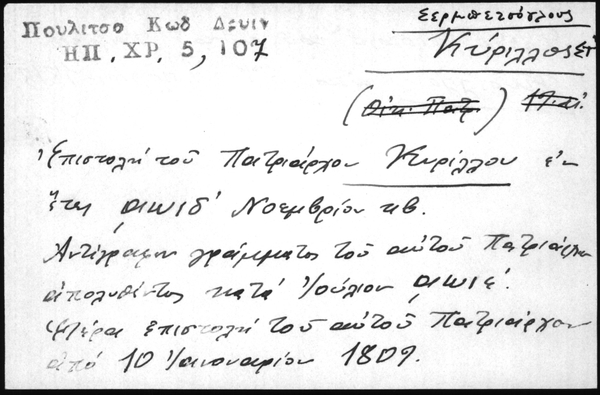 Πουλιτσο Κωδ Δρυιν
ΗΠ. ΧΡ. 5, 107
Σερμπετσόγλους
Κύριλλος ΣΤ΄
(Οἰκ. Πατρ.) 19. αἰ.
Ἐπιστολὴ τοῦ Πατριάρχου Κυρίλλου ἐν
ἔτει ͵αωιδ΄ Νοεμβρίου κβ.
Ἀντίγραφον γράμματος τοῦ αὐτοῦ Πατριάρχου
ἀπολυθέντος κατὰ Ἰούλιον ͵αωιέ.
ἑτέρα ἐπιστολὴ τοῦ αὐτοῦ Πατριάρχου
ἀπὸ 10 Ἰανουαρίου 1809.